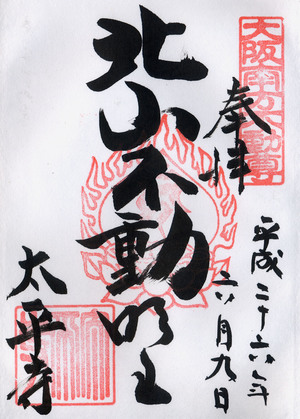 大阪四方不動尊
奉拝
平成二十六年
六月九日
北山不動明王
太平寺